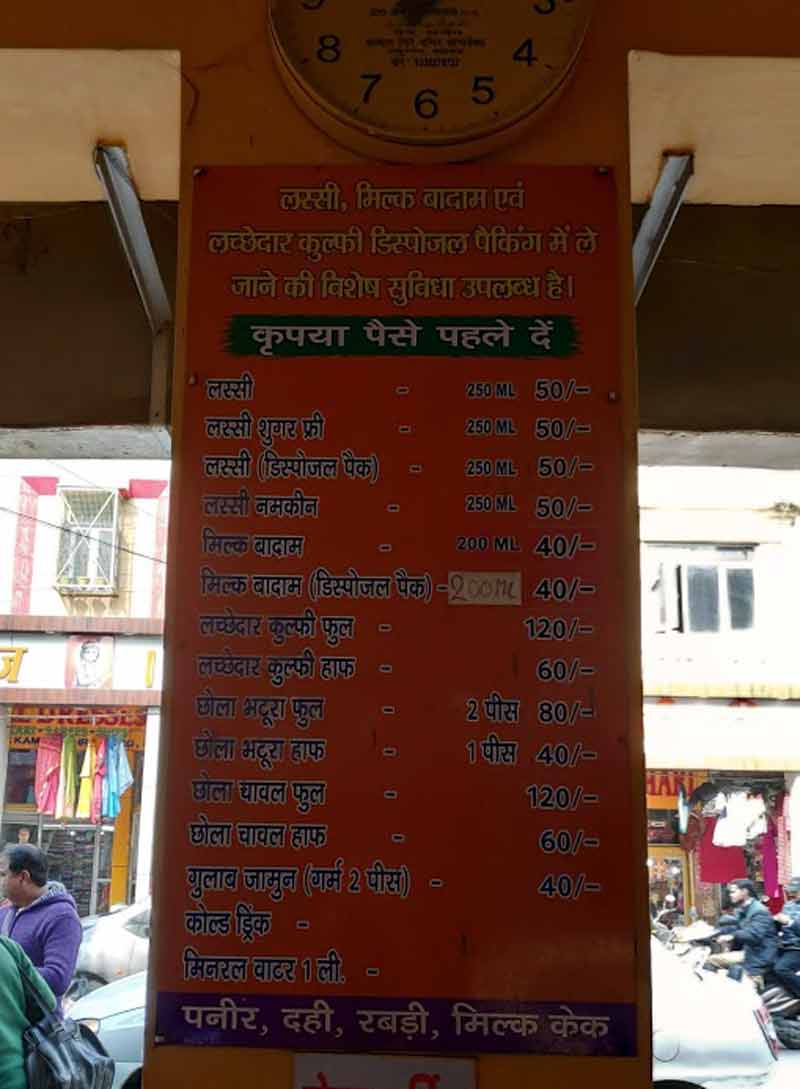 8
7
6
5
4
3
लस्सी, मिल्क बादाम एवं
लच्छेदार कुल्फी डिस्पोजल पैकिंग में ले
जाने की विशेष सुविधा उपलब्ध है।
कृपया पैसे पहले दें
लस्सी - 250 ML 50/-
लस्सी शुगर फ्री - 250 ML 50/-
लस्सी (डिस्पोजल पैक) - 250 ML 50/-
लस्सी नमकीन - 250 ML 50/-
मिल्क बादाम - 200 ML 40/-
मिल्क बादाम (डिस्पोजल पैक) - 200 ML 40/-
लच्छेदार कुल्फी फुल - 120/-
लच्छेदार कुल्फी हाफ - 60/-
छोला भटूरा फुल - 2 पीस 80/-
छोला भटूरा हाफ - 1 पीस 40/-
छोला चावल फुल - 120/-
छोला चावल हाफ - 60/-
गुलाब जामुन (गर्म 2 पीस) - 40/-
कोल्ड ड्रिंक -
मिनरल वाटर 1 ली. -
पनीर, दही, रबड़ी, मिल्क केक
DRESSES